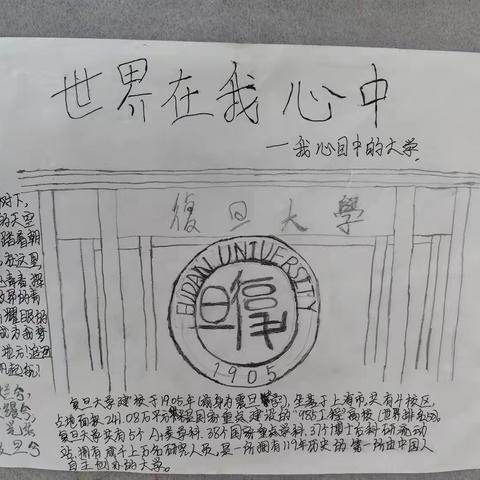 世界在我心中
—我心目中的大学
復旦大學
FUDAN UNIVERSITY
復旦
1905
树下,
的天空
踏着朝
这里
耀眼的
成为我梦
地方!追逐
复旦大学建校于1905年(前身为震旦学院),坐落于上海市,实有4校区,
占地面积241.08万平 是国家重点建设的"985工程"高校(世界排名50).
复旦大学实有5个A+类学科,38个国家重点学科,37个博士后科研流动
站,拥有成千上万名研究人员,是一所拥有119年历史的第一所由中国人
自主创办的大学。